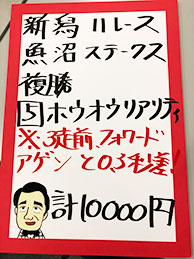 新潟11レース
魚沼ステークス
複勝
5 ホウオウリアリティ
※3走前、フォワード
アゲンと0.3秒差!
計10000円